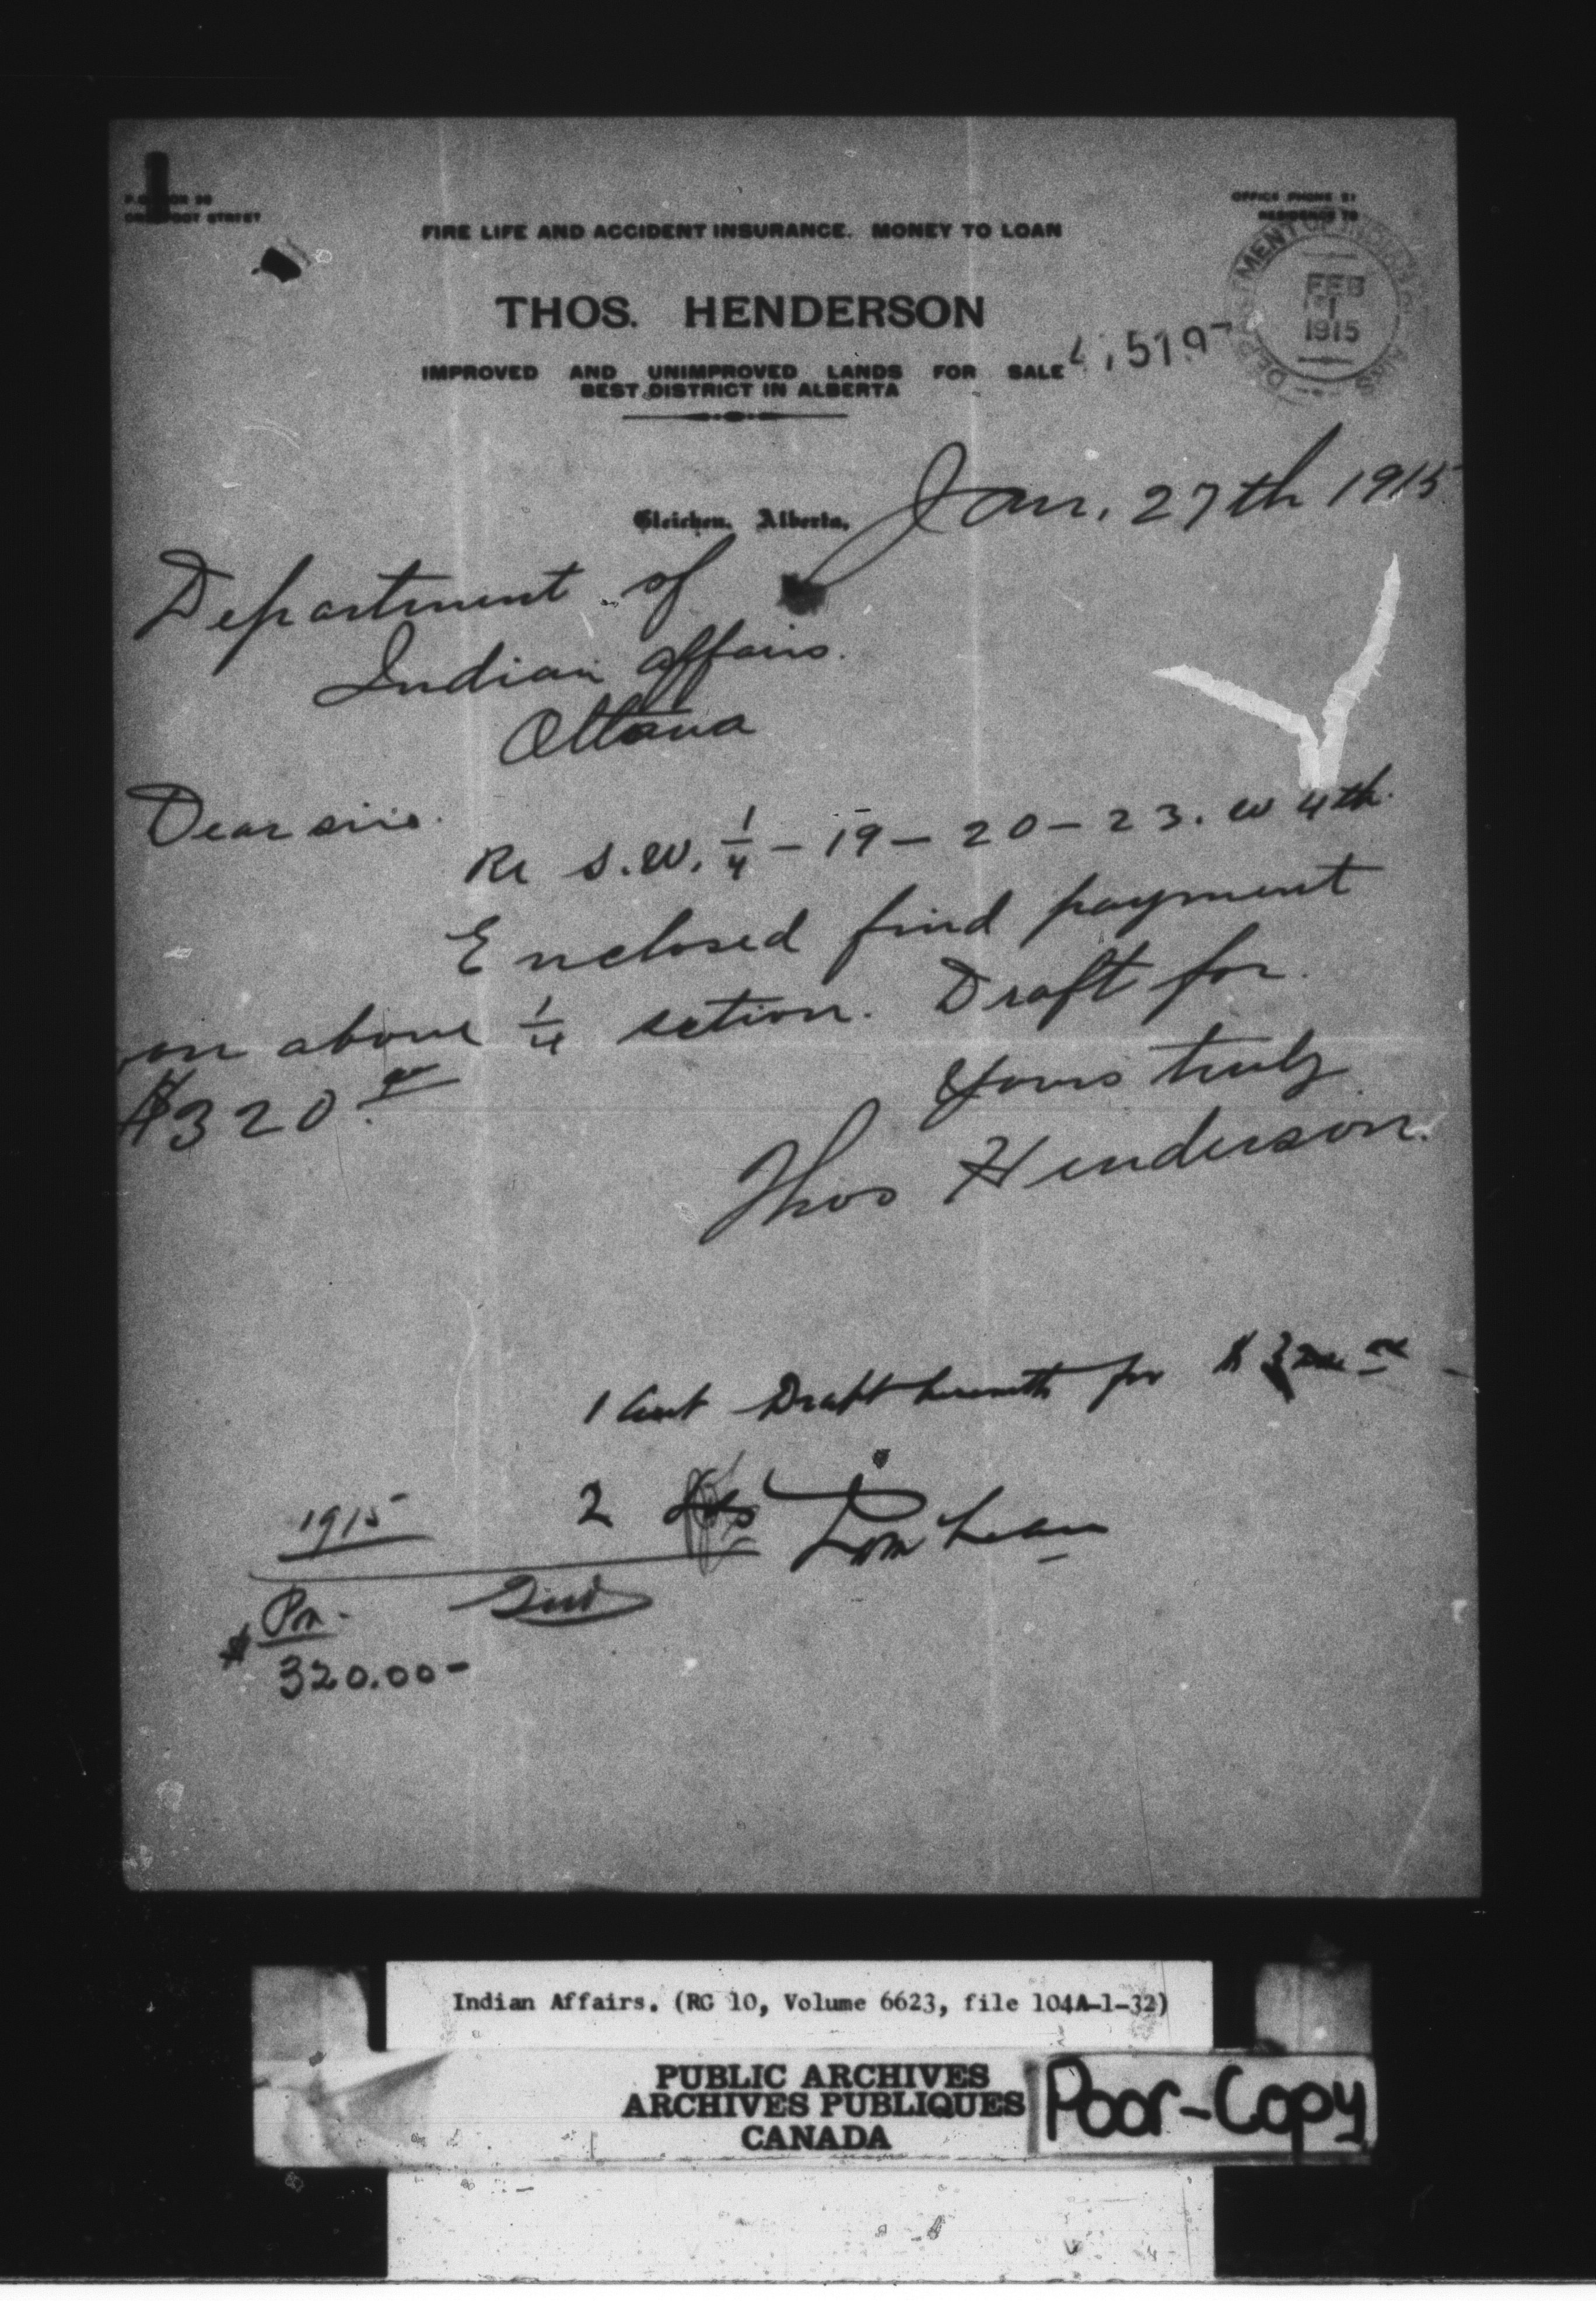 P.O. BOX
STREET
OFFICE PHONE 21
RESIDENCE 70
FIRE LIFE AND ACCIDENT INSURANCE. MONEY TO LOAN
THOS. HENDERSON
IMPROVED AND UNIMPROVED LANDS FOR SALE
BEST DISTRICT IN ALBERTA
DEPARTMENT OF INDIAN AFFAIRS
FEB
1
1915
Gleichen, Alberta, Jan. 27th 1915
Department of
Indian affairs.
Ottawa
Dear sirs.
Re S.W. 1/4 - 19 - 20 - 23. W 4th.
Enclosed find payment
on above 1/4 section. Draft for
$320.00
Yours truly
Thos Henderson.
1 Draft herewith for $
1915
2
Pr.
$
320.00-
Indian Affairs. (RG 10, Volume 6623, file 104A-1-32)
PUBLIC ARCHIVES
ARCHIVES PUBLIQUES
CANADA
Poor-Copy